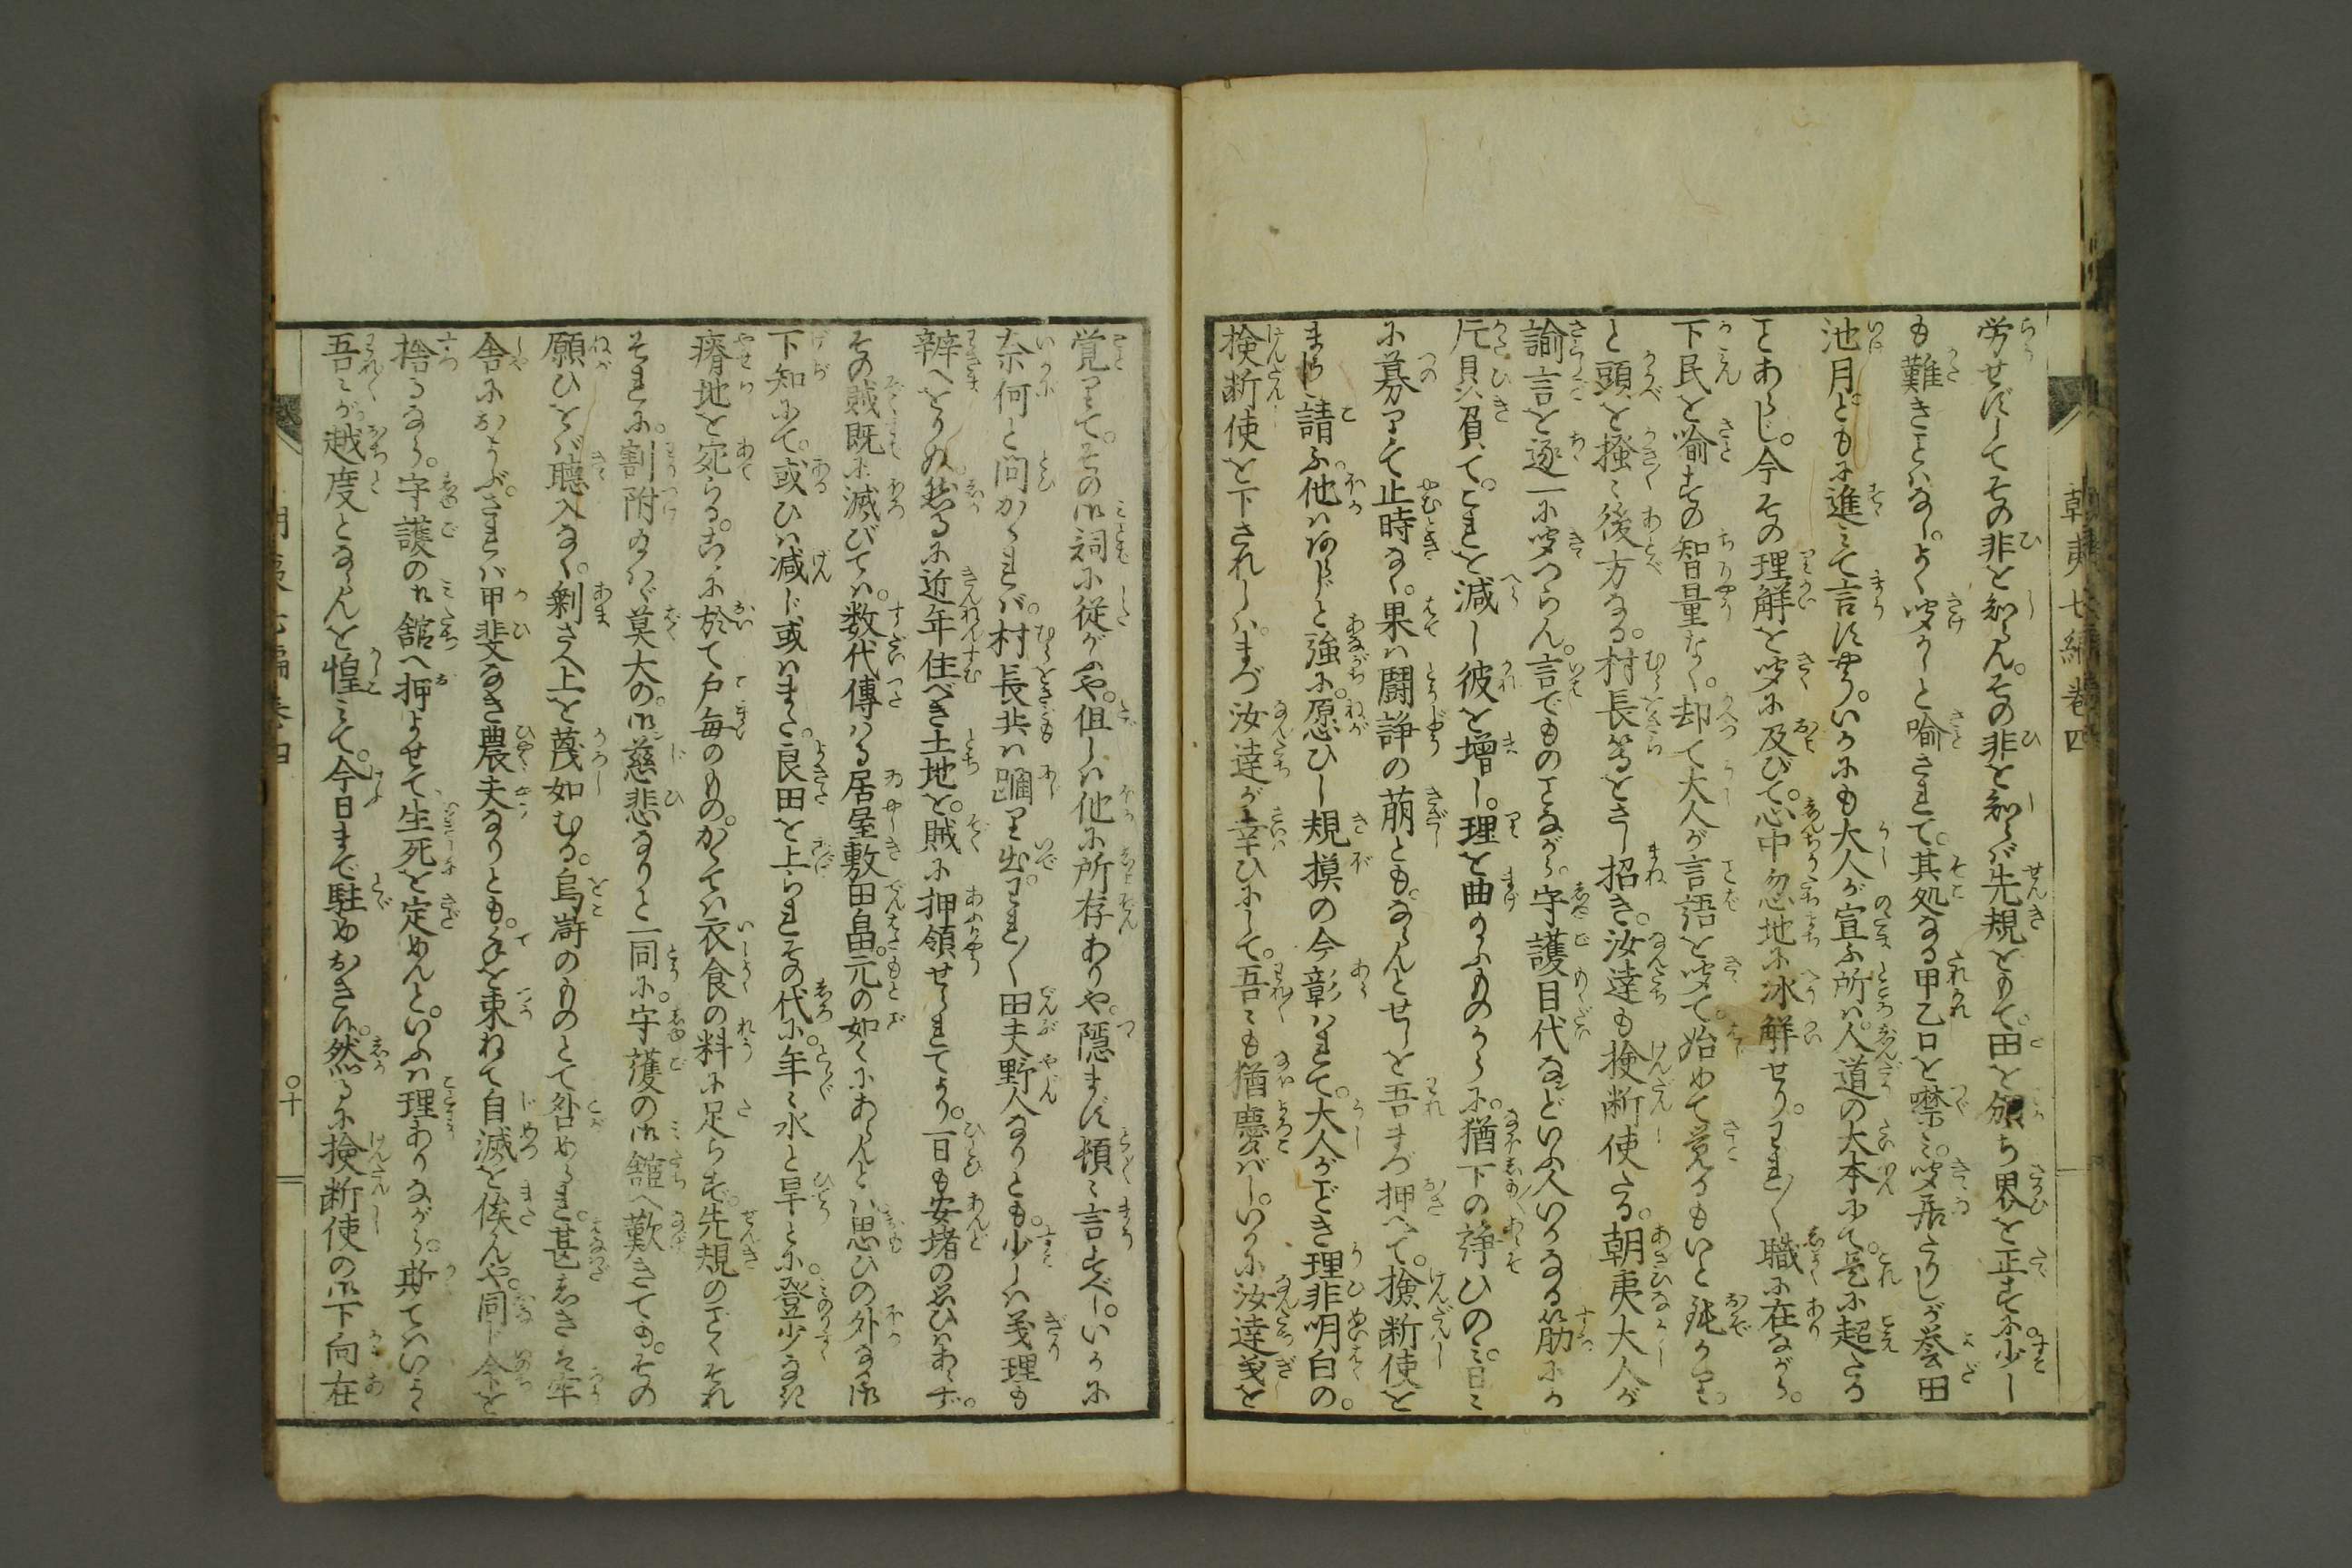 朝夷七編巻四
労せずしてその非を知らん。その非を知らバ先規をもて。田を分ち界を正すに。少し
も難きことハなし。よく聞けかしと喩されて。其処なる甲乙口を噤ミ。聞居たりしが誉田
池月ともに進ミて言すやう。いかにも大人が宣ふ所ハ。人道の大本にて。是に超たる
ことあらじ。今その理解を聞に及びて。心中忽地に氷解せり。われ〳〵職に在ながら。
下民を喩すの智量なく。却て大人が言語を聞て。始めて覚るもいと鈍かり。
と頭を掻く後方なる。村長等をさし招き。汝達も検断使たる。朝夷大人が
諭言を逐一に聞つらん。言でものことながら。守護目代などいふ人いかなる筋にか
片贔屓て。これを減し彼を増し。理を曲るものから。猶下の諍ひの。日ミ
に募りて止時なく。果ハ闘諍の萌とも。ならんとせしを吾まづ押へて。検断使を
まうし請ふ。他ハあらじと強に。愿ひし規摸の今彰ハれて。大人がごとき理非明白の。
検断使を下されしハ。まづ汝達が幸ひにして。吾ミも猶慶バし。いかに汝達義を
覚りて。その御詞に従がふや。但しハ他に所存ありや。隠まず頓ミ言すべし。いかに
奈何と問かくれバ。村長共ハ踊り出。われ〳〵田夫野人なりとも。少しハ義理も
辨へをりぬ。然るに近年住べき土地を。賊に押領せられてより。一日も安堵の思ひハあらず。
その賊既に滅びてハ。数代傳ハる居屋敷田畠。元の如くにあらんとハ思ひの外なる御
下知にて。或ひハ減じ或ハまた。良田を上られその代に。年ミ水と旱とに。登少なき
瘠地を宛らる。茲に於て戸毎のもの。かくてハ衣食の料に足らず。先規のごとくそれ
それに。割附なハゞ莫大の。御慈悲なりと一同に。守護の御舘へ歎きても。その
願ひをバ聴入なく。剰さへ上を蔑如むる。烏滸のものとて咎めらる。甚しきハ牢
舎におよぶ。されバ甲斐なき農夫なりとも。手を束ねて自滅を俟んや。同じ命を
捨るなら。守護の御舘へ押よせて。生死を定めんと。いふハ理ありながら。斯てハいよく
吾ミが。越度とならんを惶ミて。今日まで駐めおき候。然るに検断使の御下向在
朝夷七編巻四
〇十